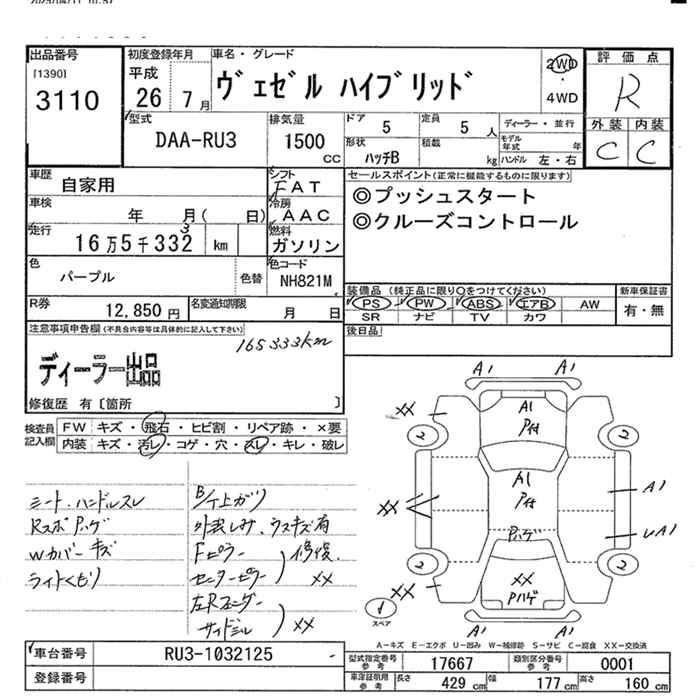 出品番号
[1390]
3110
初度登録年月
平成
26 年 7 月
車名・グレード
ヴェゼル ハイブリッド
2WD
・
4WD
評価点
R
外装 内装
C C
型式
DAA-RU3
排気量
1500
CC
ドア
5
定員
5 人
ディーラー・並行
モデル年式 年
ハンドル 左・右
形状
ハッチB
積載
kg
車歴
自家用
シフト
FAT
セールスポイント(正常に機能するものに限ります)
◎プッシュスタート
◎クルーズコントロール
車検
年 月( 日)
冷房
AAC
走行
16万5千332 km
3
燃料
ガソリン
色
パープル
色替
色コード
NH821M
装備品(純正品に限り○をつけてください)
PS PW ABS エアB AW
SR ナビ TV カワ
新車保証書
有・無
R券
12,850 円
名変通知期限
月 日
後日品
注意事項申告欄(不具合内容等は具体的に記入して下さい)
165333km
ディーラー出品
修復歴 有〔箇所 〕
検査員記入欄
FW キズ・飛石・ヒビ割・リペア跡・×要
内装 キズ・汚レ・コゲ・穴・スレ・キレ・破レ
シート、ハンドルスレ
Rスポ Pハゲ
Wカバー キズ
ライトくもり
B/上ガリ
外装しみ、ウスキズ有
Fピラー
センターピラー
修復、
××
左Rフェンダー
サイドシル
××
A1 A1
A1
P付
×× ××
2 2
A1
P付
××
A1
Pハゲ
A1
2 2
××
Pハゲ
×× ××
1
スペア
A1 A1
A-キズ E-エクボ U-凹み W-補修跡 S-サビ C-腐食 XX-交換済
車台番号
RU3-1032125
登録番号
型式指定番号
参考
17667
類別区分番号
参考
0001
車庫証明用
参考
長さ 429 cm 幅 177 cm 高さ 160 cm